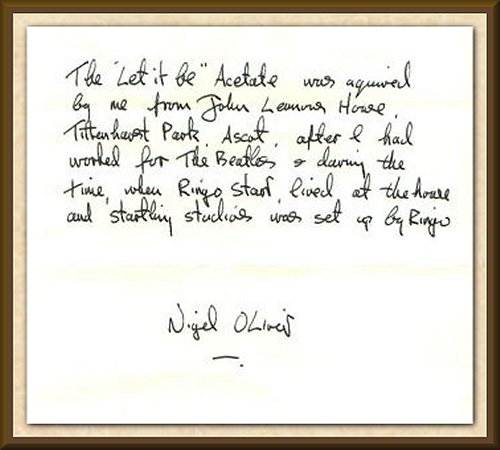 The "Let it be" Acetate was aquired
by me from John Lennons House,
Tittenhurst Park, Ascot, after I had
worked for The Beatles & during the
time, when Ringo Starr, lived at the house
and startling studios was set up by Ringo
Nigel Oliver